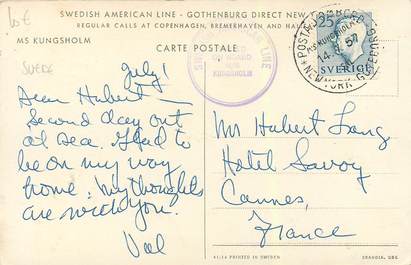 SWEDISH AMERICAN LINE - GOTHENBURG DIRECT NEW
REGULAR CALLS AT COPENHAGEN, BREMERHAVEN AND HALI
MS KUNGSHOLM
CARTE POSTALE
SUEDE
LINE
ON BOARD
KUNGSHOLM
POSTAD OMBORD
M/S KUNGSHOLM
57
NEW YORK-GÖTEBORG
25
SVERIGE
July 1
Dear Hubert —
Second day out
at sea. Glad to
be on my way
home. My thoughts
are with you.
Val
Mr Hubert Lang
Hotel Savoy
Cannes,
France
PRINTED IN SWEDEN
ESSELTE, GBG